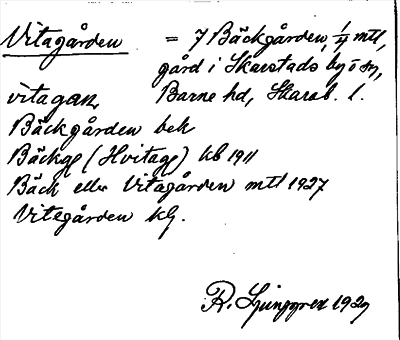 Vitagården = 7 Bäckgården, 1/4 mtl,
gård i Skarstads by o sn,
vitagan, Barne hd, Skarab. l.
Bäckgården bek
Bäckg (Hvitag) kb 1911
Bäck eller Vitagården mtl 1927
Vitegården kg.
R. Ljunggren 1929